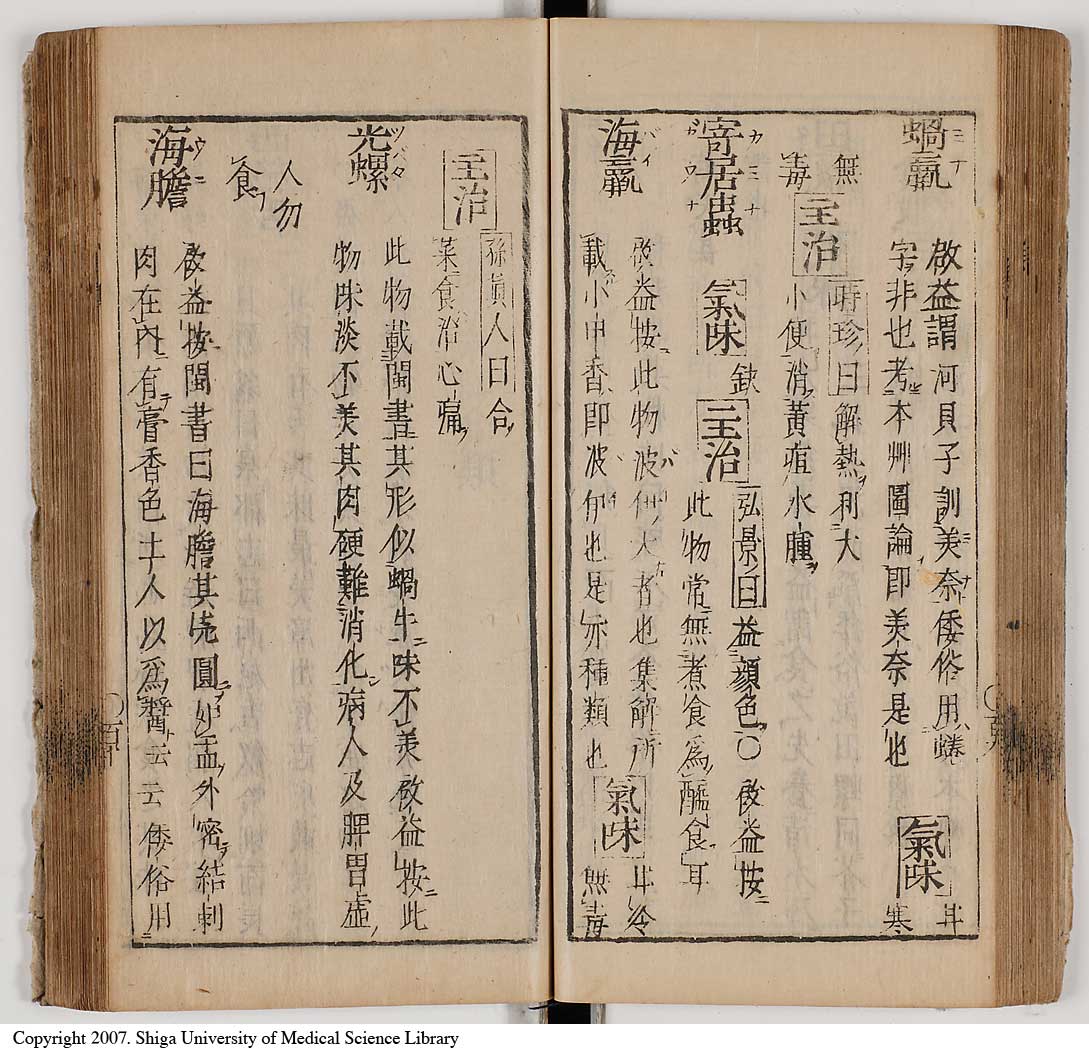 蝸蠃 ミナ
啟益謂河貝子訓美奈倭俗用蜷
字非也考本艸圖論即美奈是也
氣味
甘
寒
無
毒
主治
時珍曰解熱利大
小便消黃疸水腫
寄居蟲 カミナ ガウナ
氣味
缺
主治
弘景曰益顏色〇啟益按
此物常無煮食為醢食耳
海蠃 バイ
啟益按此物波伊大者也集解所
載小甲香即波伊也是亦種類也
氣味
甘冷
無毒
主治
孫眞人曰合
菜食治心痛
光螺 ツバタ
此物載閩書其形似蝸牛味不美啟益按此
物味淡不美其肉硬難消化病人及脾胃虛
人勿
食
海膽 ウニ
啟益按閩書曰海膽其売圓如盂外密結刺
肉在內有膏香色土人以爲醬云云倭俗用
Copyright 2007. Shiga University of Medical Science Library